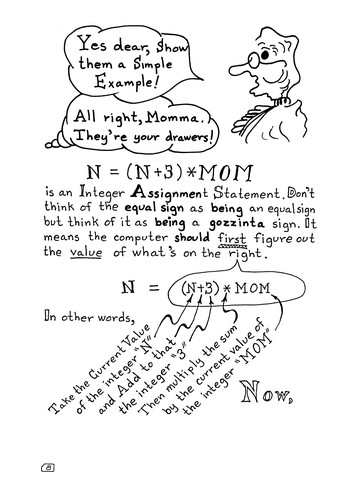 Yes dear, Show
them a Simple
Example!
All right, Momma.
They're your drawers!
N = (N+3)*MOM
is an Integer Assignment Statement. Don't
think of the equal sign as being an equal sign
but think of it as being a gozzinta sign. It
means the computer should first figure out
the value of what's on the right.
N = (N+3) * MOM
In other words,
Take the Current Value
of the integer "N"
and Add to that
the integer "3"
Then multiply the sum
by the current value of
the integer "MOM"
Now,
8